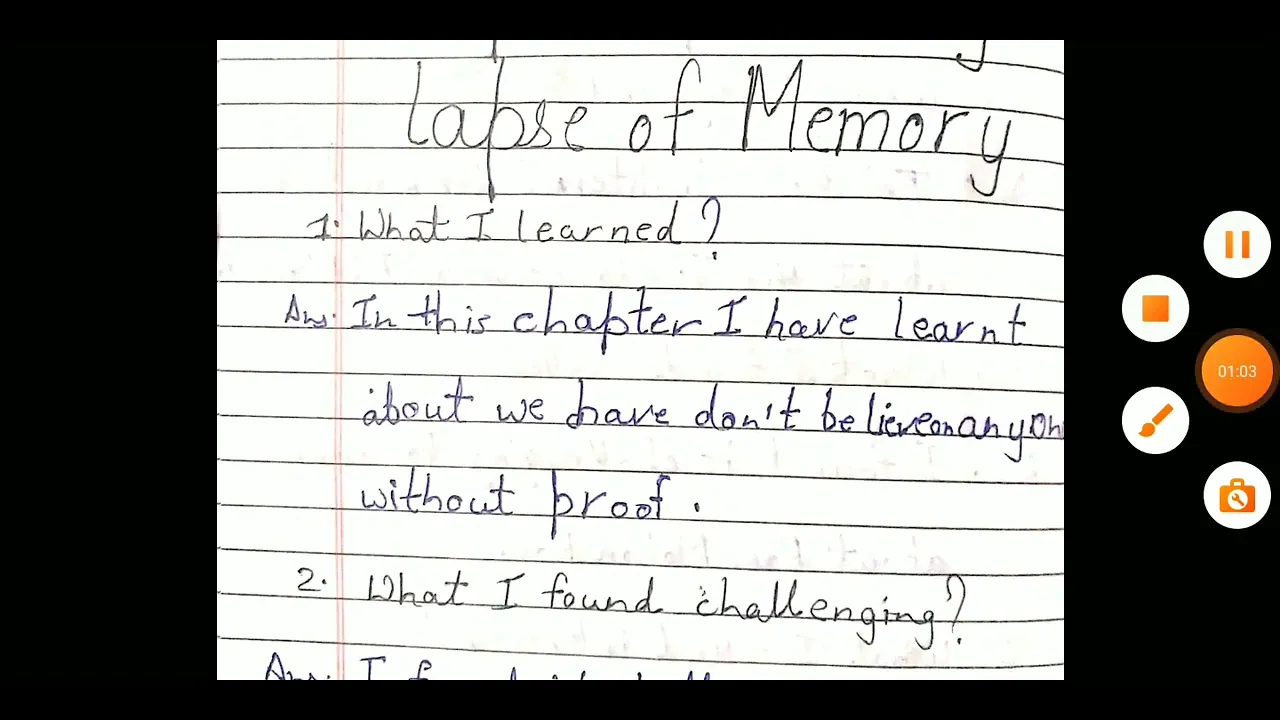 Lapse of Memory
1. What I learned?
Ans. In this chapter I have learnt
about we have don't believe on anyon
without proof.
2. What I found challenging?
Ans. I
01:03